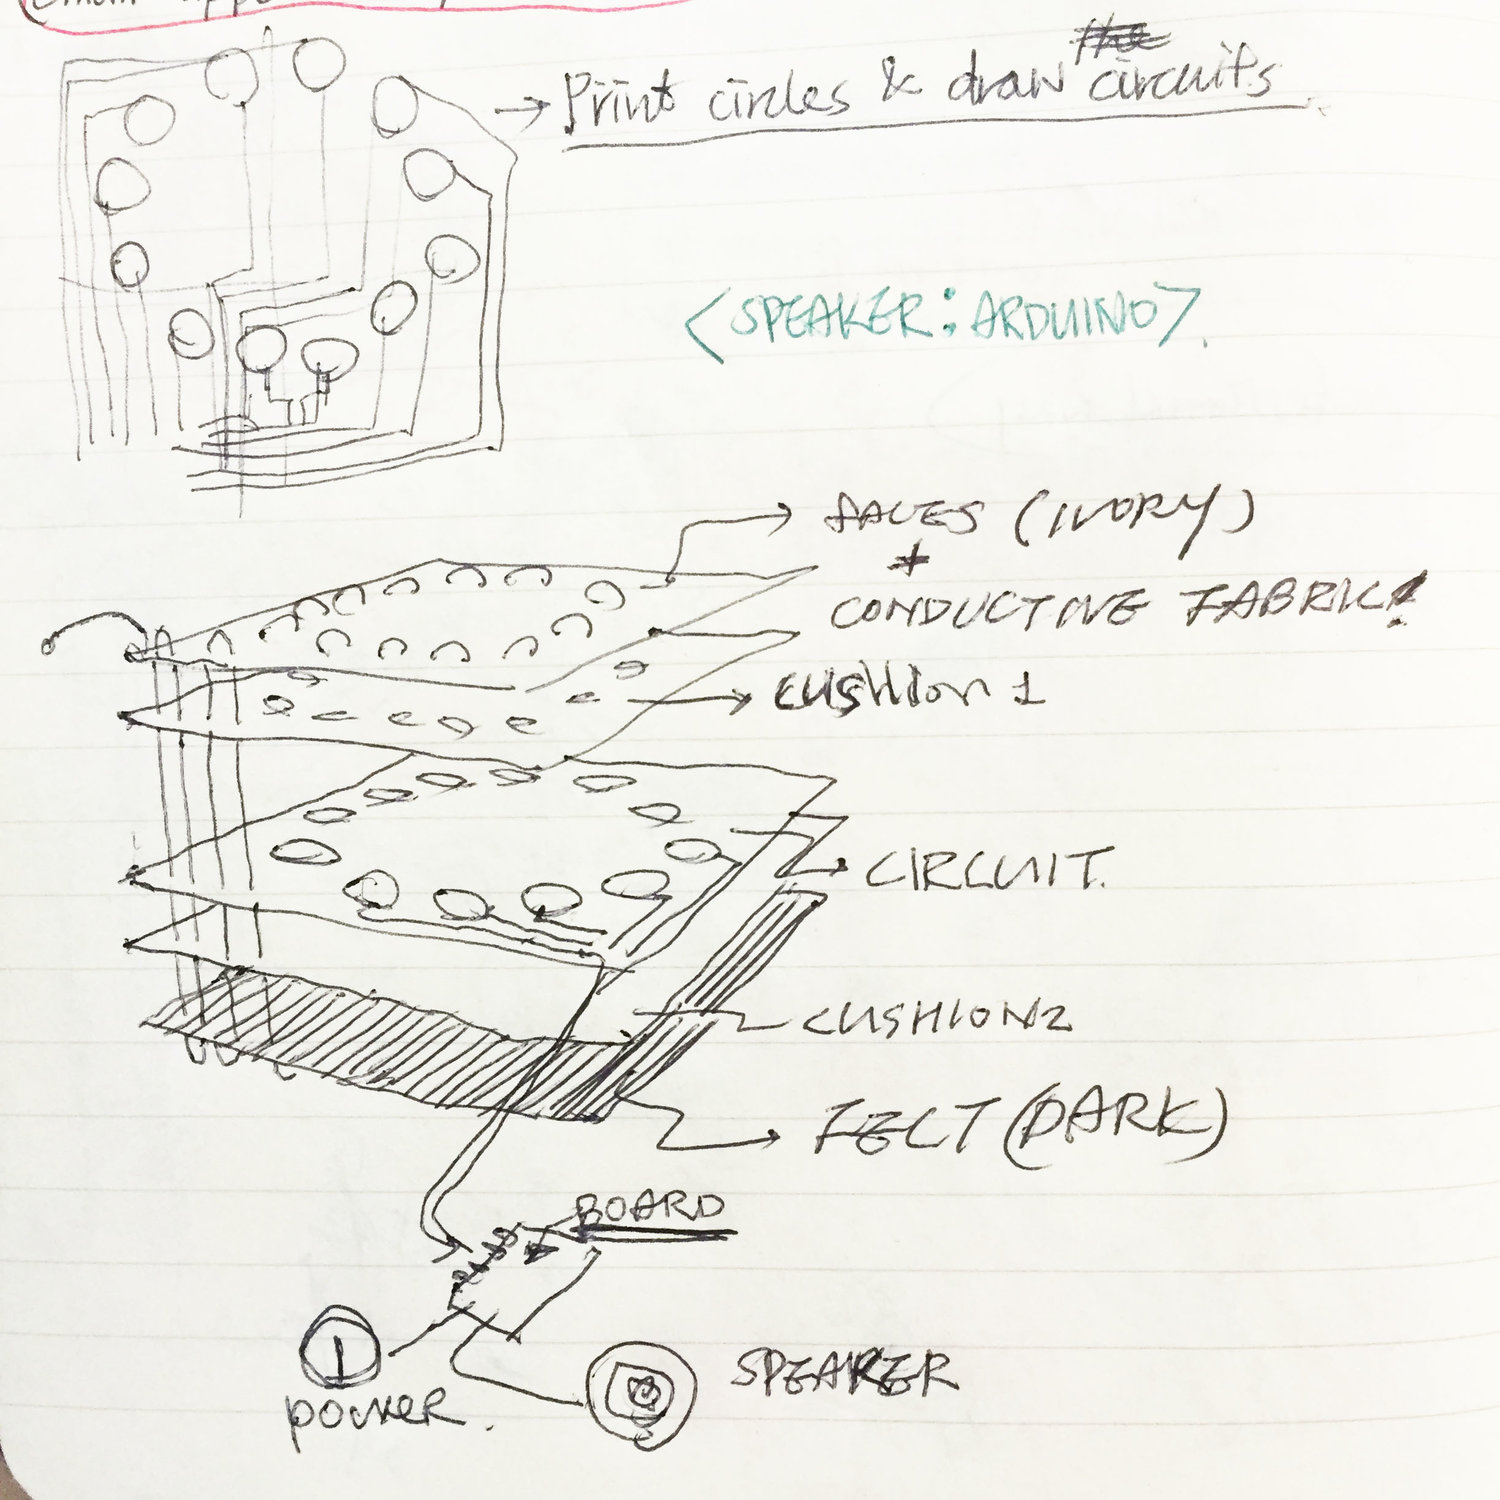 Print circles & draw the circuits
<SPEAKER: ARDUINO>.
(IVORY)
+
CONDUCTING FABRIC!
CUSHION 1
CIRCUIT.
CUSHION2
FELT (DARK)
BOARD
1
SPEAKER
power.